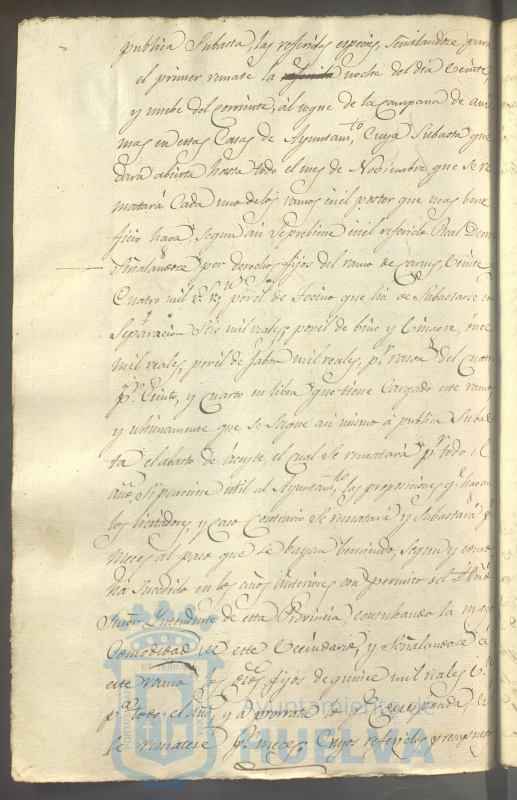 publica Subasta, las referidas especies, Señalandose para
el primer remate la noche del dia Veinte
y nuebe del corriente, al toque de la campana de Ani
mas en estas Casas de Ayuntam.to, Cuya Subasta que
dara abierta hasta todo el mes de Noviembre, que se re
matará Cada uno de los ramos en el postor que mas bene
ficio haga, Segun asi se prebiene en el referido Real Decreto
Señalandose por derechos fijos del ramo de Carnes, Veinte
Cuatro mil r.s v.n, por el de Tocino que ha de Subastarse con
Separacion Seis mil reales, por el de bino y Vinagre, once
mil reales, por el de Jabon mil reales, p.r rason del Cuatro
p.r Ciento, y Cuarto en libra que tiene Cargado este ramo,
y ultimamente que se Saque asi mismo á publica Subas
ta el abasto de Aceyte, el cual Se rematará p.r todo el
año, Si pareciese util al Ayuntam.to las proposiciones q.e hagan
los licitadores, y Caso Contrario Se rematará y Subastará p.r
meses al paso que Se bayan benciendo, Segun y como
ha Sucedido en los años anteriores con permiso del
Señor Intendente de esta Provincia, consultando la mayor
Comodidad de este Vecindario, y Señalandose á
este ramo fijos de quince mil reales v.n
p.a todo el año, y á prorrata lo q.e Corresponda, Si
Se rematase p.r meses. Cuyos referidos
Ayuntamiento de
HUELVA